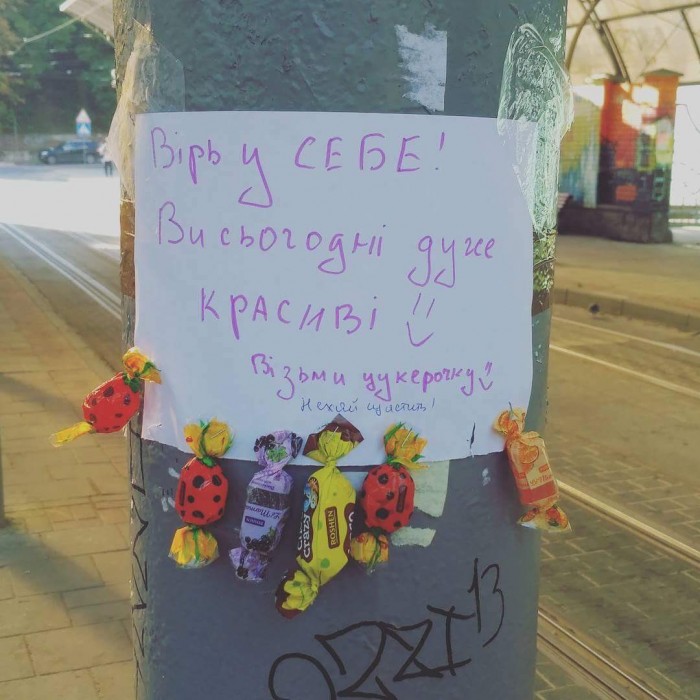 Вірь у СЕБЕ!
Ви сьогодні дуже
красиві
Візьми цукерочку
Нехай щастить!
Crazy
ROSHEN
OZZT13